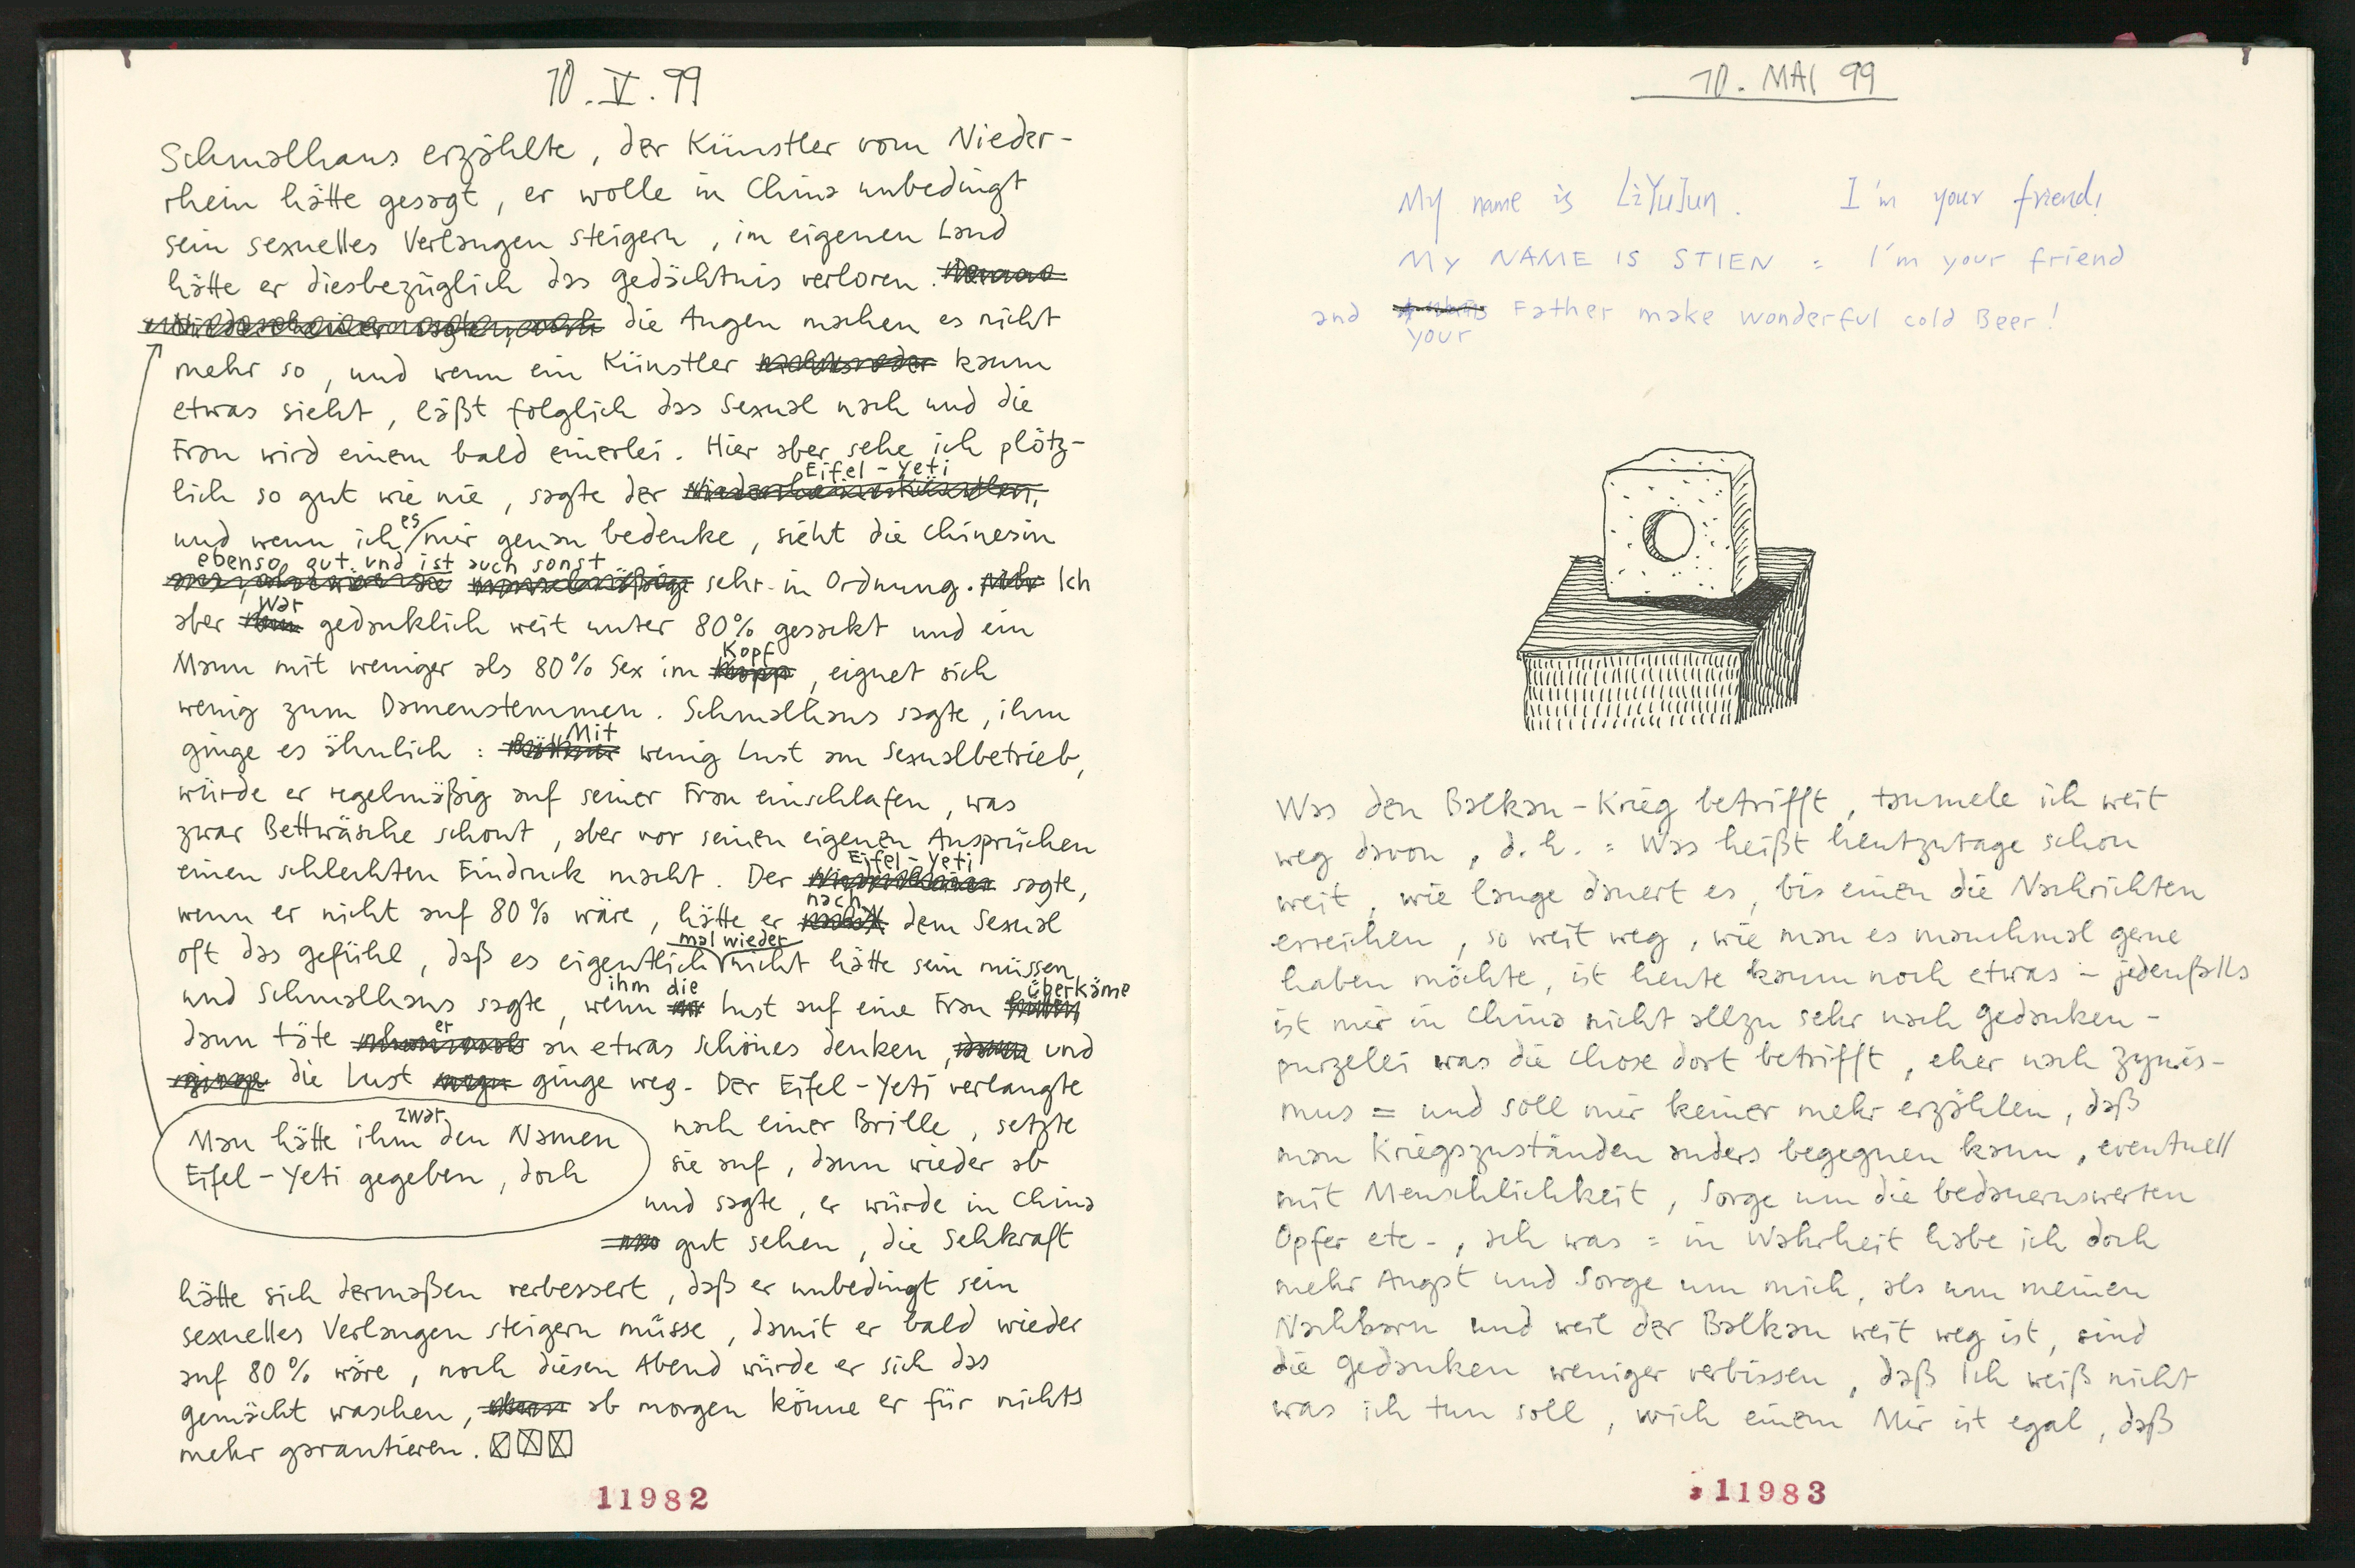 10. V. 99
Schmalhans erzählte, der Künstler vom Nieder-
rhein hätte gesagt, er wolle in China unbedingt
sein sexuelles Verlangen steigern, im eigenen Land
hätte er diesbezüglich das Gedächtnis verloren.
die Augen machen es nicht
mehr so, und wenn ein Künstler kaum
etwas sieht, läßt folglich das Sexual nach und die
Frau wird einem bald einerlei. Hier aber sehe ich plötz-
Eifel-Yeti
lich so gut wie nie, sagte der
und wenn ich es mir genau bedenke, sieht die Chinesin
ebenso gut und ist auch sonst
sehr in Ordnung. Ich
war
aber gedanklich weit unter 80% gesackt und ein
Kopf
Mann mit weniger als 80% Sex im , eignet sich
wenig zum Damenstemmen. Schmalhans sagte, ihm
Mit
ginge es ähnlich : wenig Lust am Sexualbetrieb,
würde er regelmäßig auf seiner Frau einschlafen, was
zwar Bettwäsche schont, aber vor seinen eigenen Ansprüchen
Eifel-Yeti
einen schlechten Eindruck macht. Der sagte,
nach
wenn er nicht auf 80% wäre, hätte er dem Sexual
mal wieder
oft das Gefühl, daß es eigentlich nicht hätte sein müssen,
ihm die überkäme
und Schmalhans sagte, wenn Lust auf eine Frau
er
dann täte an etwas Schönes denken, und
die Lust ginge weg. Der Eifel-Yeti verlangte
zwar
Man hätte ihm den Namen
Eifel-Yeti gegeben, doch
nach einer Brille, setzte
sie auf, dann wieder ab
und sagte, er würde in China
gut sehen, die Sehkraft
hätte sich dermaßen verbessert, daß er unbedingt sein
sexuelles Verlangen steigern müsse, damit er bald wieder
auf 80% wäre, noch diesen Abend würde er sich das
Gemächt waschen, ab morgen könne er für nichts
mehr garantieren.
11982
10. MAI 99
My name is LiYuJun. I'm your friend!
MY NAME IS STIEN = I'm your friend
and Father make wonderful cold Beer!
your
Was den Balkan-Krieg betrifft, taumele ich weit
weg davon, d.h. = Was heißt heutzutage schon
weit, wie lange dauert es, bis einen die Nachrichten
erreichen, so weit weg, wie man es manchmal gerne
haben möchte, ist heute kaum noch etwas – jedenfalls
ist mir in China nicht allzu sehr nach Gedanken-
purzelei was die Chose dort betrifft, eher nach Zynis-
mus = und soll mir keiner mehr erzählen, daß
man Kriegszuständen anders begegnen kann, eventuell
mit Menschlichkeit, Sorge um die bedauernswerten
Opfer etc., ach was = in Wahrheit habe ich doch
mehr Angst und Sorge um mich, als um meinen
Nachbarn und weil der Balkan weit weg ist, sind
die Gedanken weniger verbissen, daß Ich weiß nicht
was ich tun soll, wich einem Mir ist egal, daß
11983